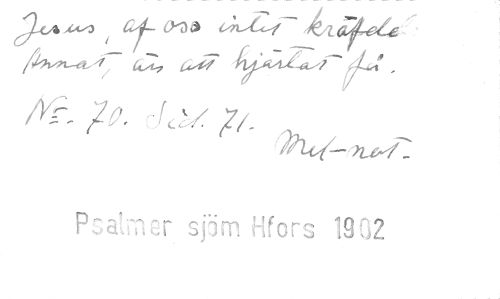 Jesus, af oss intet kräfde
Annat, än att hjärtat få.
No. 70. Sid. 71.
Mel-not-
Psalmer sjöm Hfors 1902